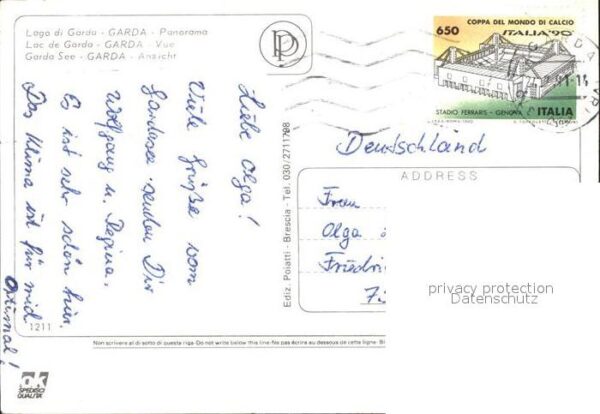 Lago di Garda - GARDA - Panorama
Lac de Garda - GARDA - Vue
Garda See - GARDA - Ansicht
Liebe Olga!
Viele Grüße vom
Gardasee senden Dir
Wolfgang u. Regina.
Es ist sehr schön hier.
Das Klima ist für mich
optimal!
1211
SPEDISCI
QUALITÀ
Ediz. Poiatti - Brescia - Tel. 030/2711798
Non scrivere al di sotto di questa riga - Do not write below this line - Ne pas écrire au dessous de cette ligne - Bi
COPPA DEL MONDO DI CALCIO
650 ITALIA '90
STADIO FERRARIS - GENOVA ITALIA
Deutschland
ADDRESS
Frau
Olga
Friedri
privacy protection
Datenschutz